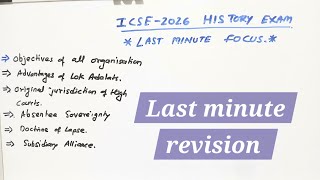 ICSE-2026 HISTORY EXAM
* LAST MINUTE FOCUS.*
⇒ Objectives of all organisation
⇒ Advantages of Lok Adalats.
⇒ Original jurisdiction of High
Courts.
⇒ Absentee Sovereignty
⇒ Doctrine of Lapse.
⇒ Subsidiary Alliance.
Last minute
revision